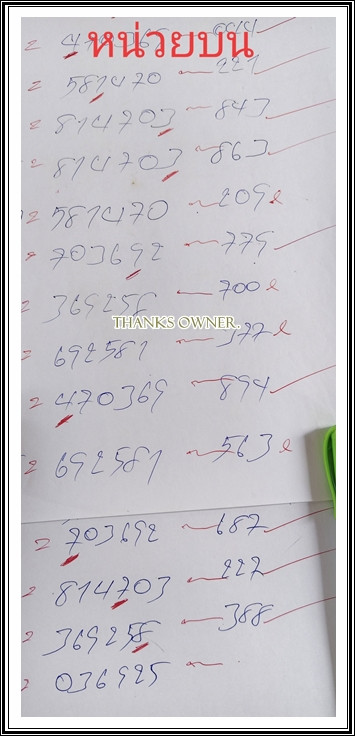 หน่วยบน
2 581470 ~ 221
2 814703 ~ 843
2 814703 ~ 863
2 581470 ~ 209 l
2 703692 ~ 779
2 369258 ~ 700 l
THANKS OWNER.
2 692581 ~ 377 l
2 470369 ~ 894
2 692581 ~ 563 l
2 703692 ~ 687
2 814703 ~ 227
2 369258 ~ 388
2 036925 ~